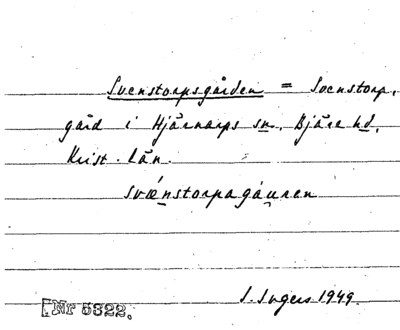 Svenstorpsgården = Svenstorp,
gård i Hjärnarps sn, Bjäre hd,
Krist. län.
svǽnstorpagáuren
S. Ingers 1949.
Nr 5322.